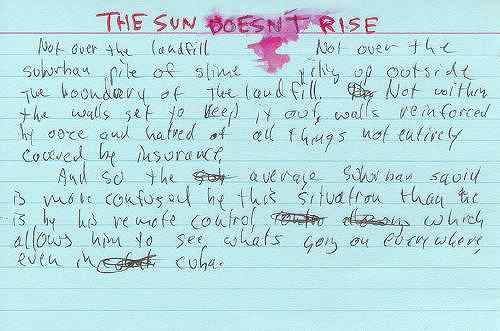 THE SUN DOESN'T RISE
Not over the landfill Not over the
suburban pile of slime piling up outside
the boundary of the landfill. Not within
the walls set to keep it out, walls reinforced
by ooze and hatred of all things not entirely
covered by insurance.
And so the average suburban squid
is more confused by this situation than he
is by his remote control, which
allows him to see what's going on everywhere,
even in cuba.